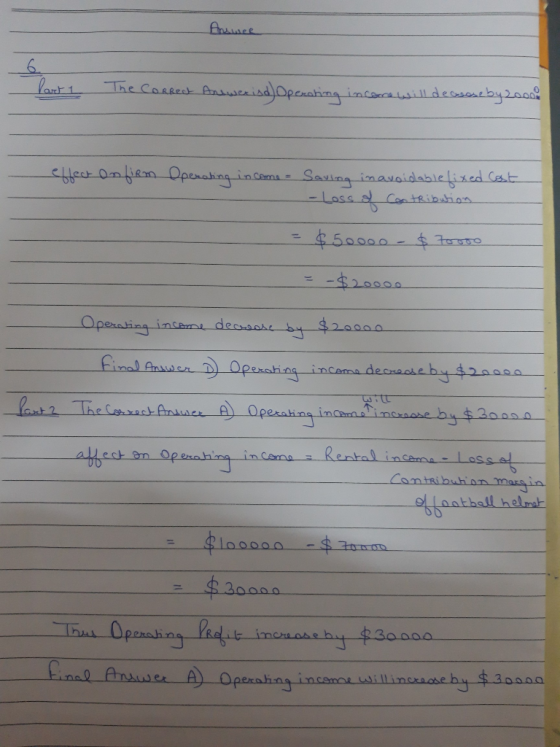 Answer
6
Part 1 The Correct Answer is d) Operating income will decrease by 20000
effect on firm Operating income = Saving in avoidable fixed Cost
- Loss of Contribution
= $50000 - $70000
= -$20000
Operating income decrease by $20000
Final Answer D) Operating income decrease by $20000
will
Part 2 The Correct Answer A) Operating income ↑ increase by $30000
affect on Operating income = Rental income - Loss of
Contribution margin
of football helmet
= $100000 - $70000
= $30000
Thus Operating Profit increase by $30000
Final Answer A) Operating income will increase by $30000